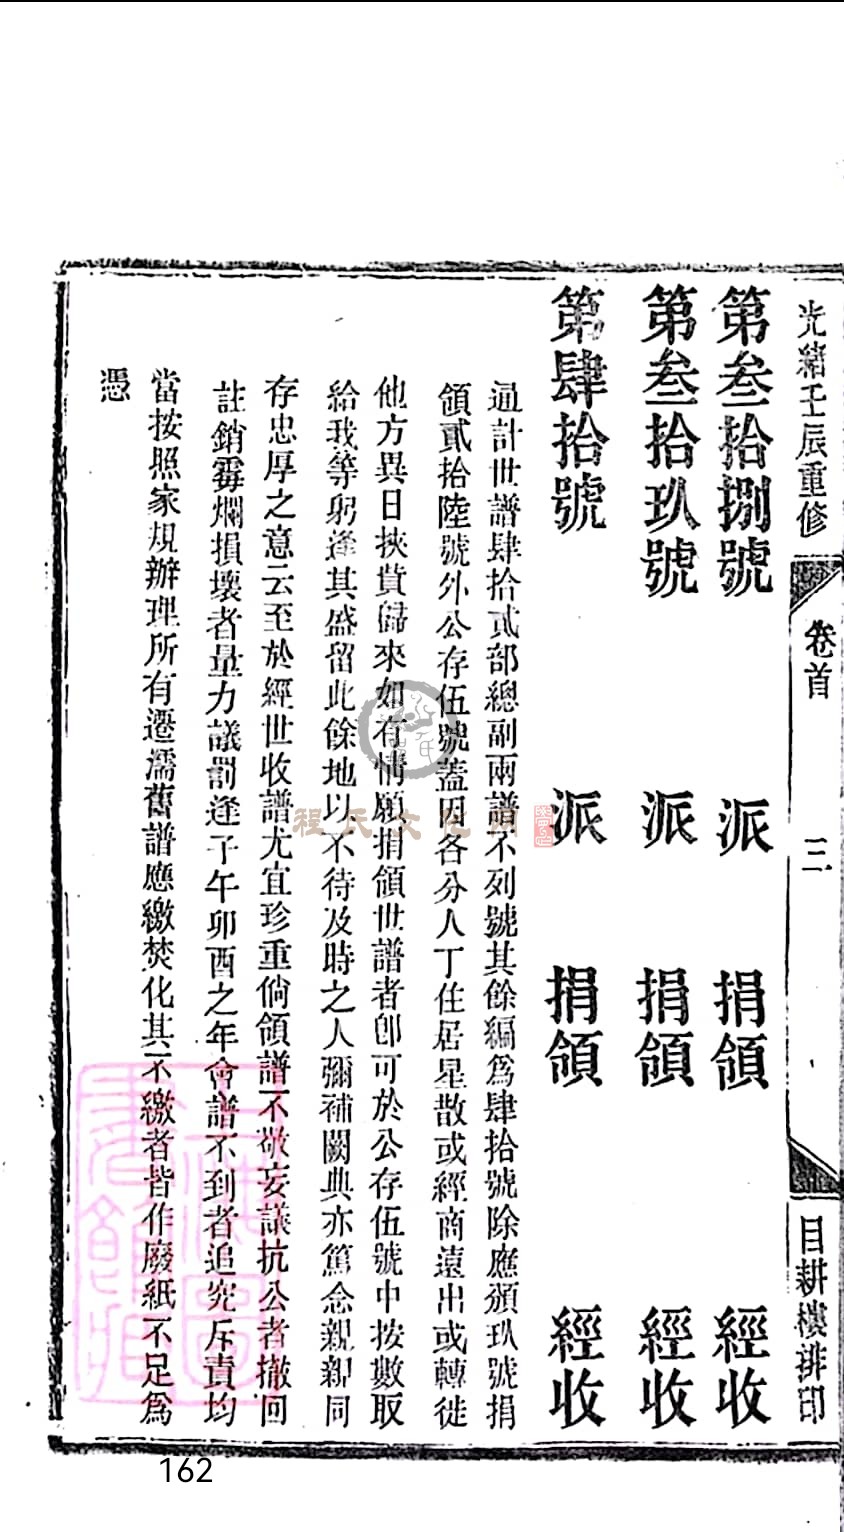 光緒壬辰重修
卷首
三
目耕樓排印
第叁拾捌號 派 捐領 經收
第叁拾玖號 派 捐領 經收
第肆拾號 派 捐領 經收
通計世譜肆拾貳部總副兩譜不列號其餘編爲肆拾號除應頒玖號捐
領貳拾陸號外公存伍號蓋因各分人丁住居星散或經商遠出或轉徙
他方異日挾貲歸來如有情願捐領世譜者卽可於公存伍號中按數取
給我等躬逢其盛留此餘地以不待及時之人彌補闕典亦篤念親親同
存忠厚之意云至於經世收譜尤宜珍重倘領譜不敬妄議抗公者撤回
註銷霉爛損壞者量力議罰逢子午卯酉之年會譜不到者追究斥責均
當按照家規辦理所有遷濡舊譜應繳焚化其不繳者皆作廢紙不足爲
憑
程氏文化网
162